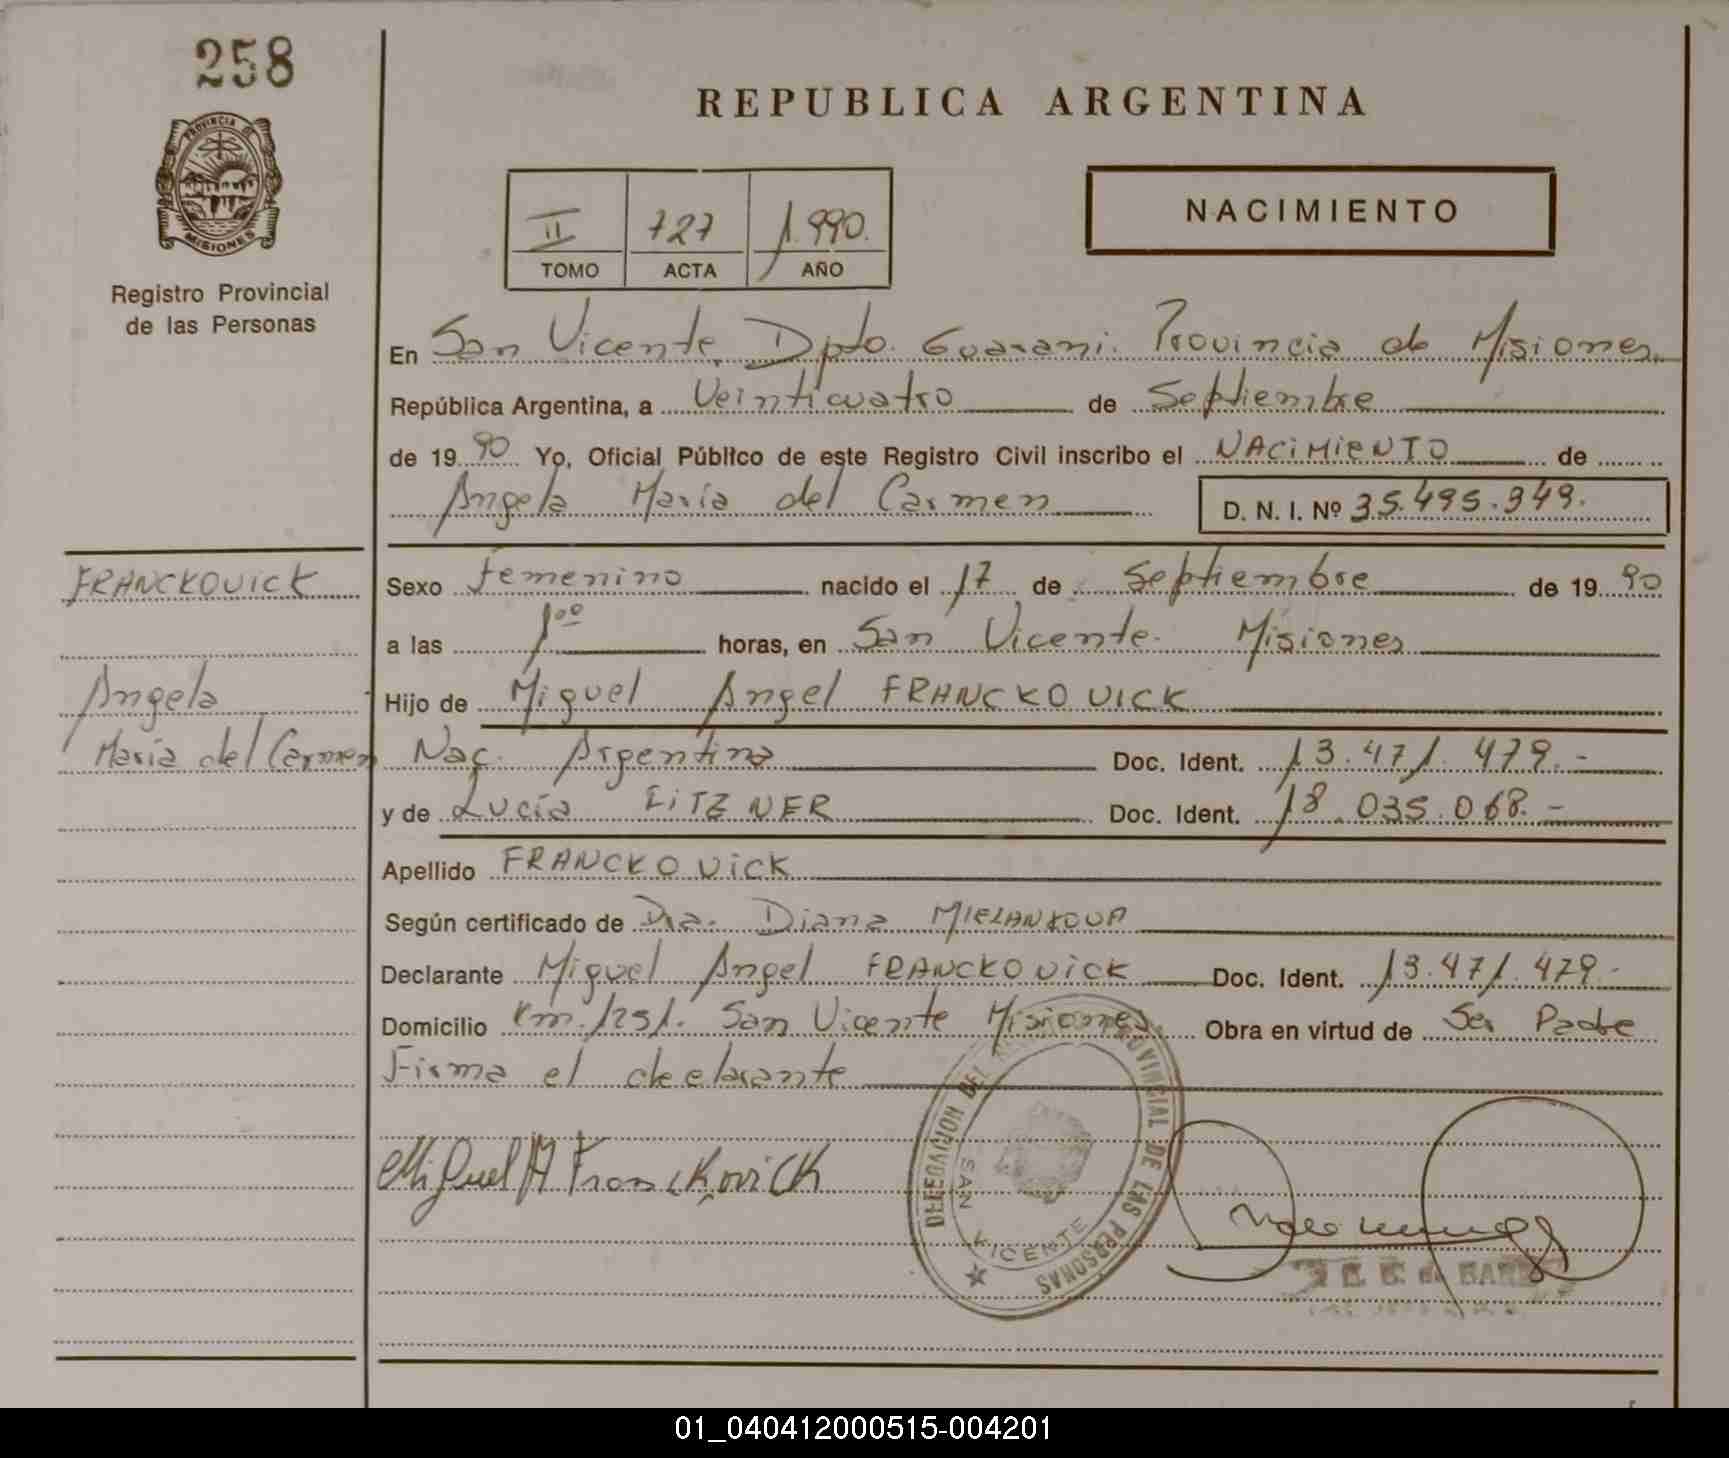 258
REPUBLICA ARGENTINA
PROVINCIA DE
MISIONES
Registro Provincial
de las Personas
II 727 1.990.
TOMO ACTA AÑO
NACIMIENTO
En San Vicente. Dpto. Guarani. Provincia de Misiones.
República Argentina, a Veinticuatro de Septiembre
de 1990 Yo, Oficial Público de este Registro Civil inscribo el NACIMIENTO de
Angela María del Carmen D. N. I. Nº 35.495.949.
FRANCKOVICK
Sexo Femenino nacido el 17 de Septiembre de 1990
a las 1.00 horas, en San Vicente. Misiones
Angela
Hijo de Miguel Angel FRANCKOVICK
María del Carmen
Nac. Argentina Doc. Ident. 13.471.479.-
y de Lucía Doc. Ident. 18.035.068.-
Apellido FRANCKOVICK
Según certificado de Dra. Diana MIELANKOVA
Declarante Miguel Angel FRANCKOVICK Doc. Ident. 13.471.479.-
Domicilio Km. 1251. San Vicente Misiones. Obra en virtud de Ser Padre
Firma el declarante
Miguel A Franckovick
PROVINCIAL DE LAS PERSONAS
SAN VICENTE
01_040412000515-004201